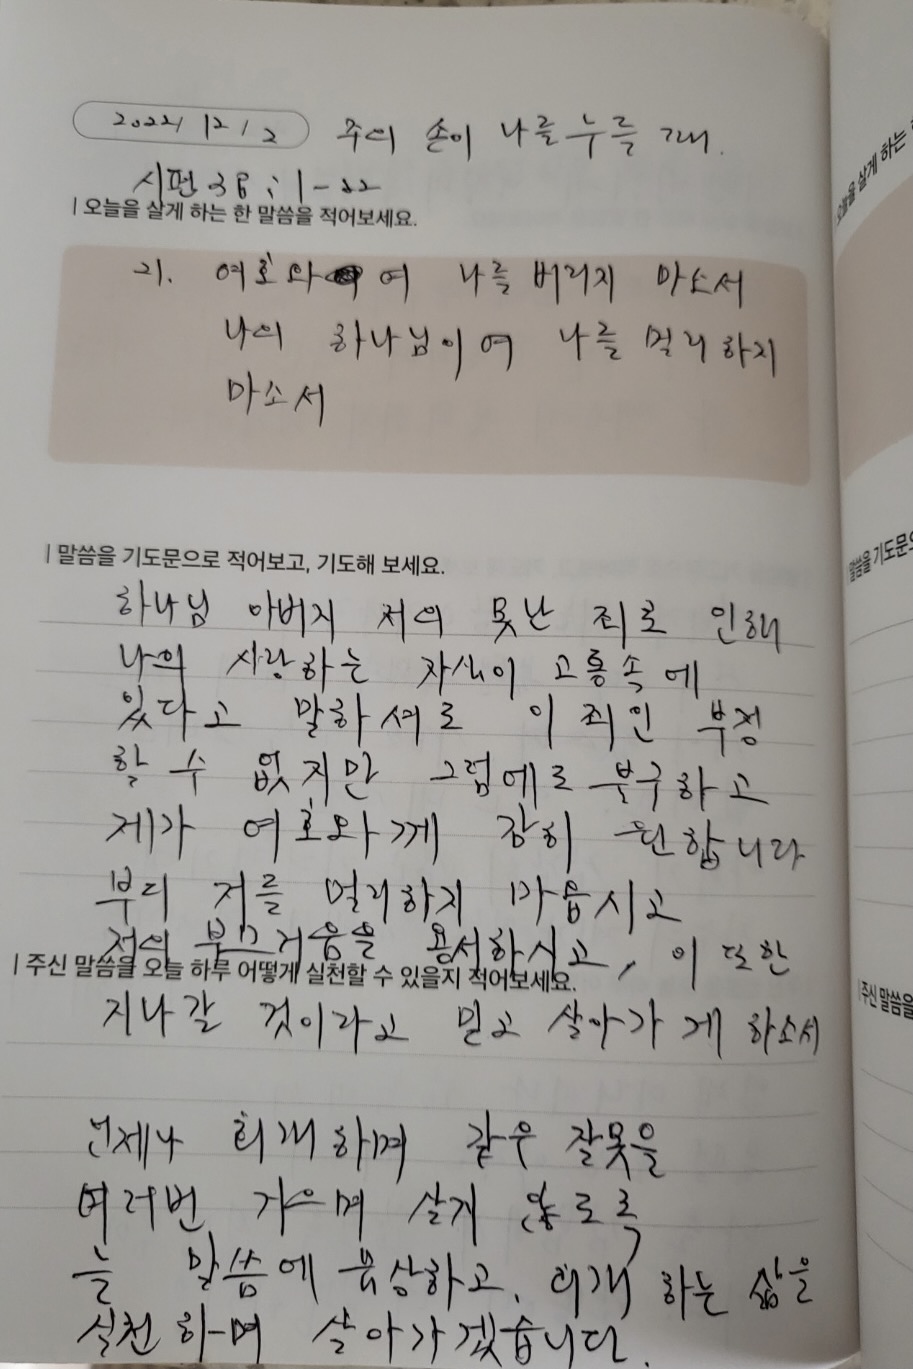 2022/ 12/ 2 주의 손이 나를 누를 때.
시편 38 ; 1-22
| 오늘을 살게 하는 한 말씀을 적어보세요.
21. 여호와여 나를 버리지 마소서
나의 하나님이여 나를 멀리하지
마소서
| 말씀을 기도문으로 적어보고, 기도해 보세요.
하나님 아버지 저의 못난 죄로 인해
나의 사랑하는 자식이 고통속에
있다고 말하셔도 이 죄인 부정
할 수 없지만 그럼에도 불구하고
제가 여호와께 감히 원합니다
부디 저를 멀리하지 마옵시고
저의 부끄러움을 용서하시고, 이 또한
| 주신 말씀을 오늘 하루 어떻게 실천할 수 있을지 적어보세요.
지나갈 것이라고 믿고 살아가게 하소서
언제나 회개하며 같은 잘못을
여러번 하며 살지 않도록
늘 말씀에 묵상하고, 회개하는 삶을
실천하며 살아가겠습니다.
오늘을 살게 하는
말씀을 기도문으
| 주신 말씀을